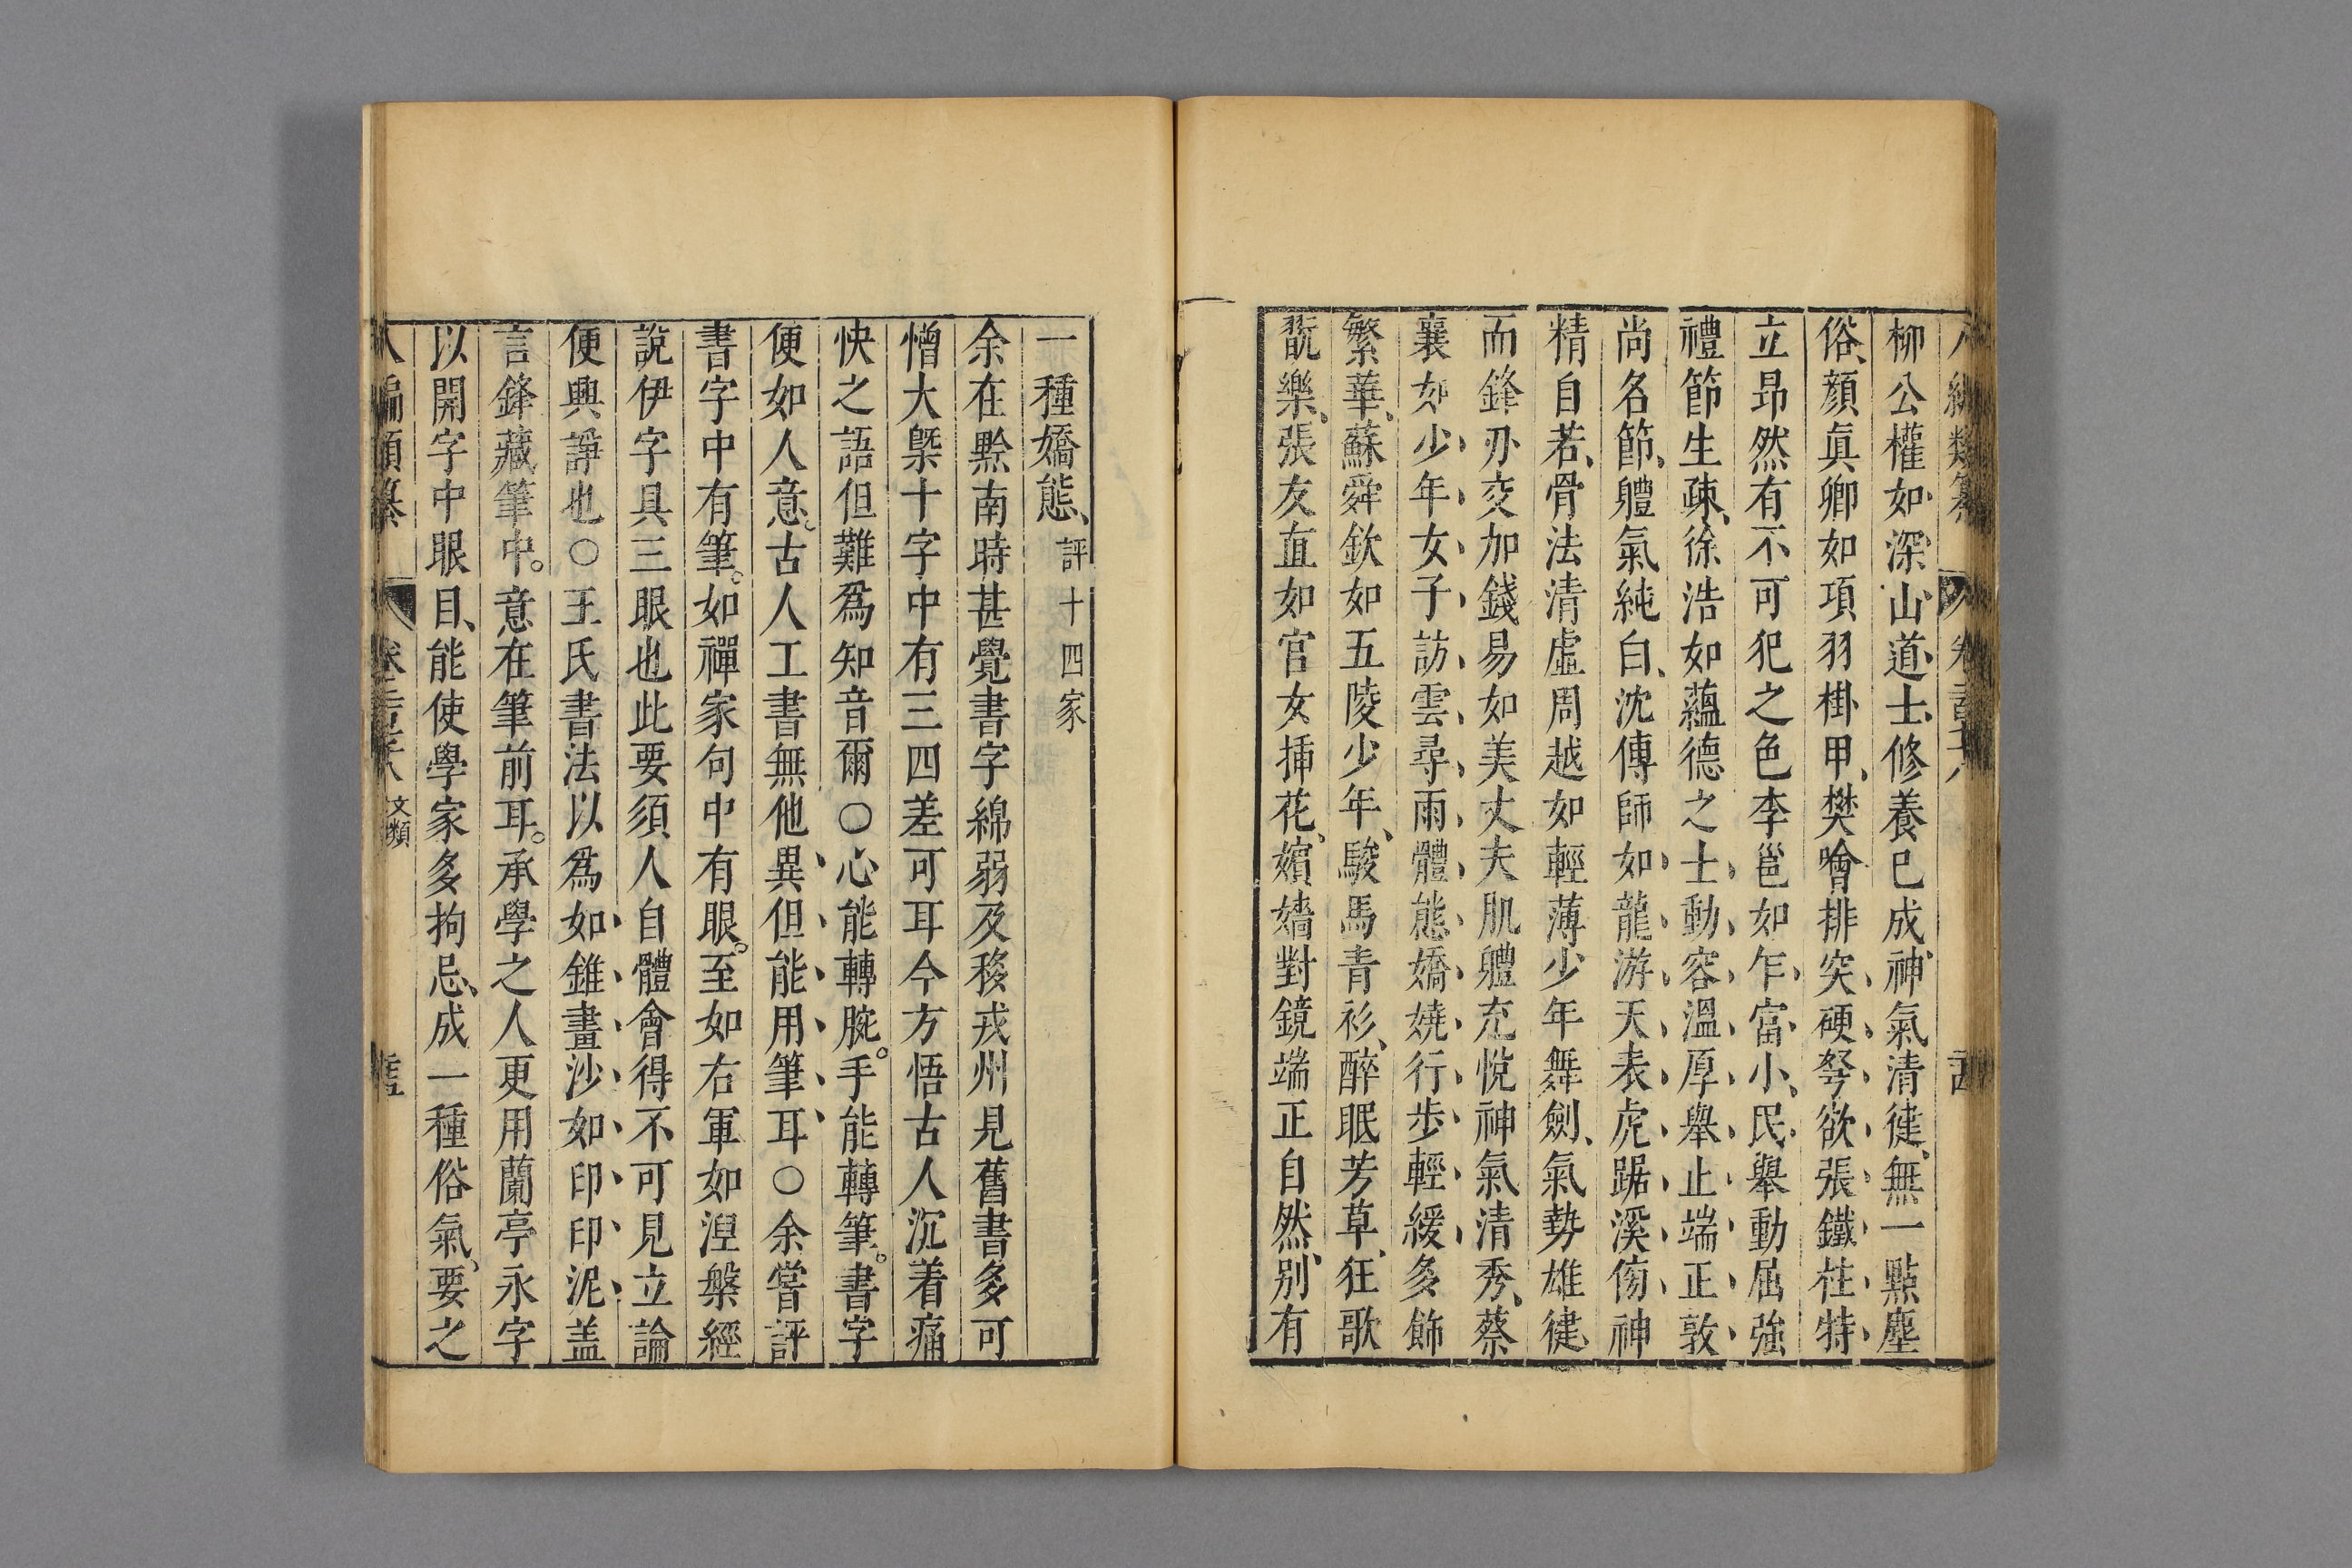 柳公權如深山道士修養已成神氣清健無一點塵
俗顏眞卿如項羽掛甲樊噲排突硬弩欲張鐵柱特
立昻然有不可犯之色李邕如乍富小民舉動屈強
禮節生疎徐浩如蘊德之士動容溫厚舉止端正敦
尚名節軆氣純白沈傳師如龍游天表虎踞溪傍神
精自若骨法清虛周越如輕薄少年舞劍氣勢雄健
而鋒刃交加錢易如美丈夫肌軆充悅神氣清秀蔡
襄如少年女子訪雲尋雨體態嬌嬈行步輕緩多飾
繁華蘇舜欽如五陵少年駿馬青衫醉眠芳草狂歌
翫樂張友直如宫女揷花嬪嬙對鏡端正自然別有
一種嬌態評十四家
余在黔南時甚覺書字綿弱及移戎州見舊書多可
憎大槩十字中有三四差可耳今方悟古人沉着痛
快之語但難爲知音爾○心能轉腕。手能轉筆。書字
便如人意。古人工書無他異但能用筆耳○余嘗評
書字中有筆。如禪家句中有眼。至如右軍如湼槃經
說伊字具三眼也此要須人自體會得不可見立論
便興諍也○王氏書法以爲如錐畫沙如印印泥盖
言鋒藏筆中。意在筆前耳。承學之人更用蘭亭永字
以開字中眼目能使學家多拘忌成一種俗氣要之
八編類纂
文類